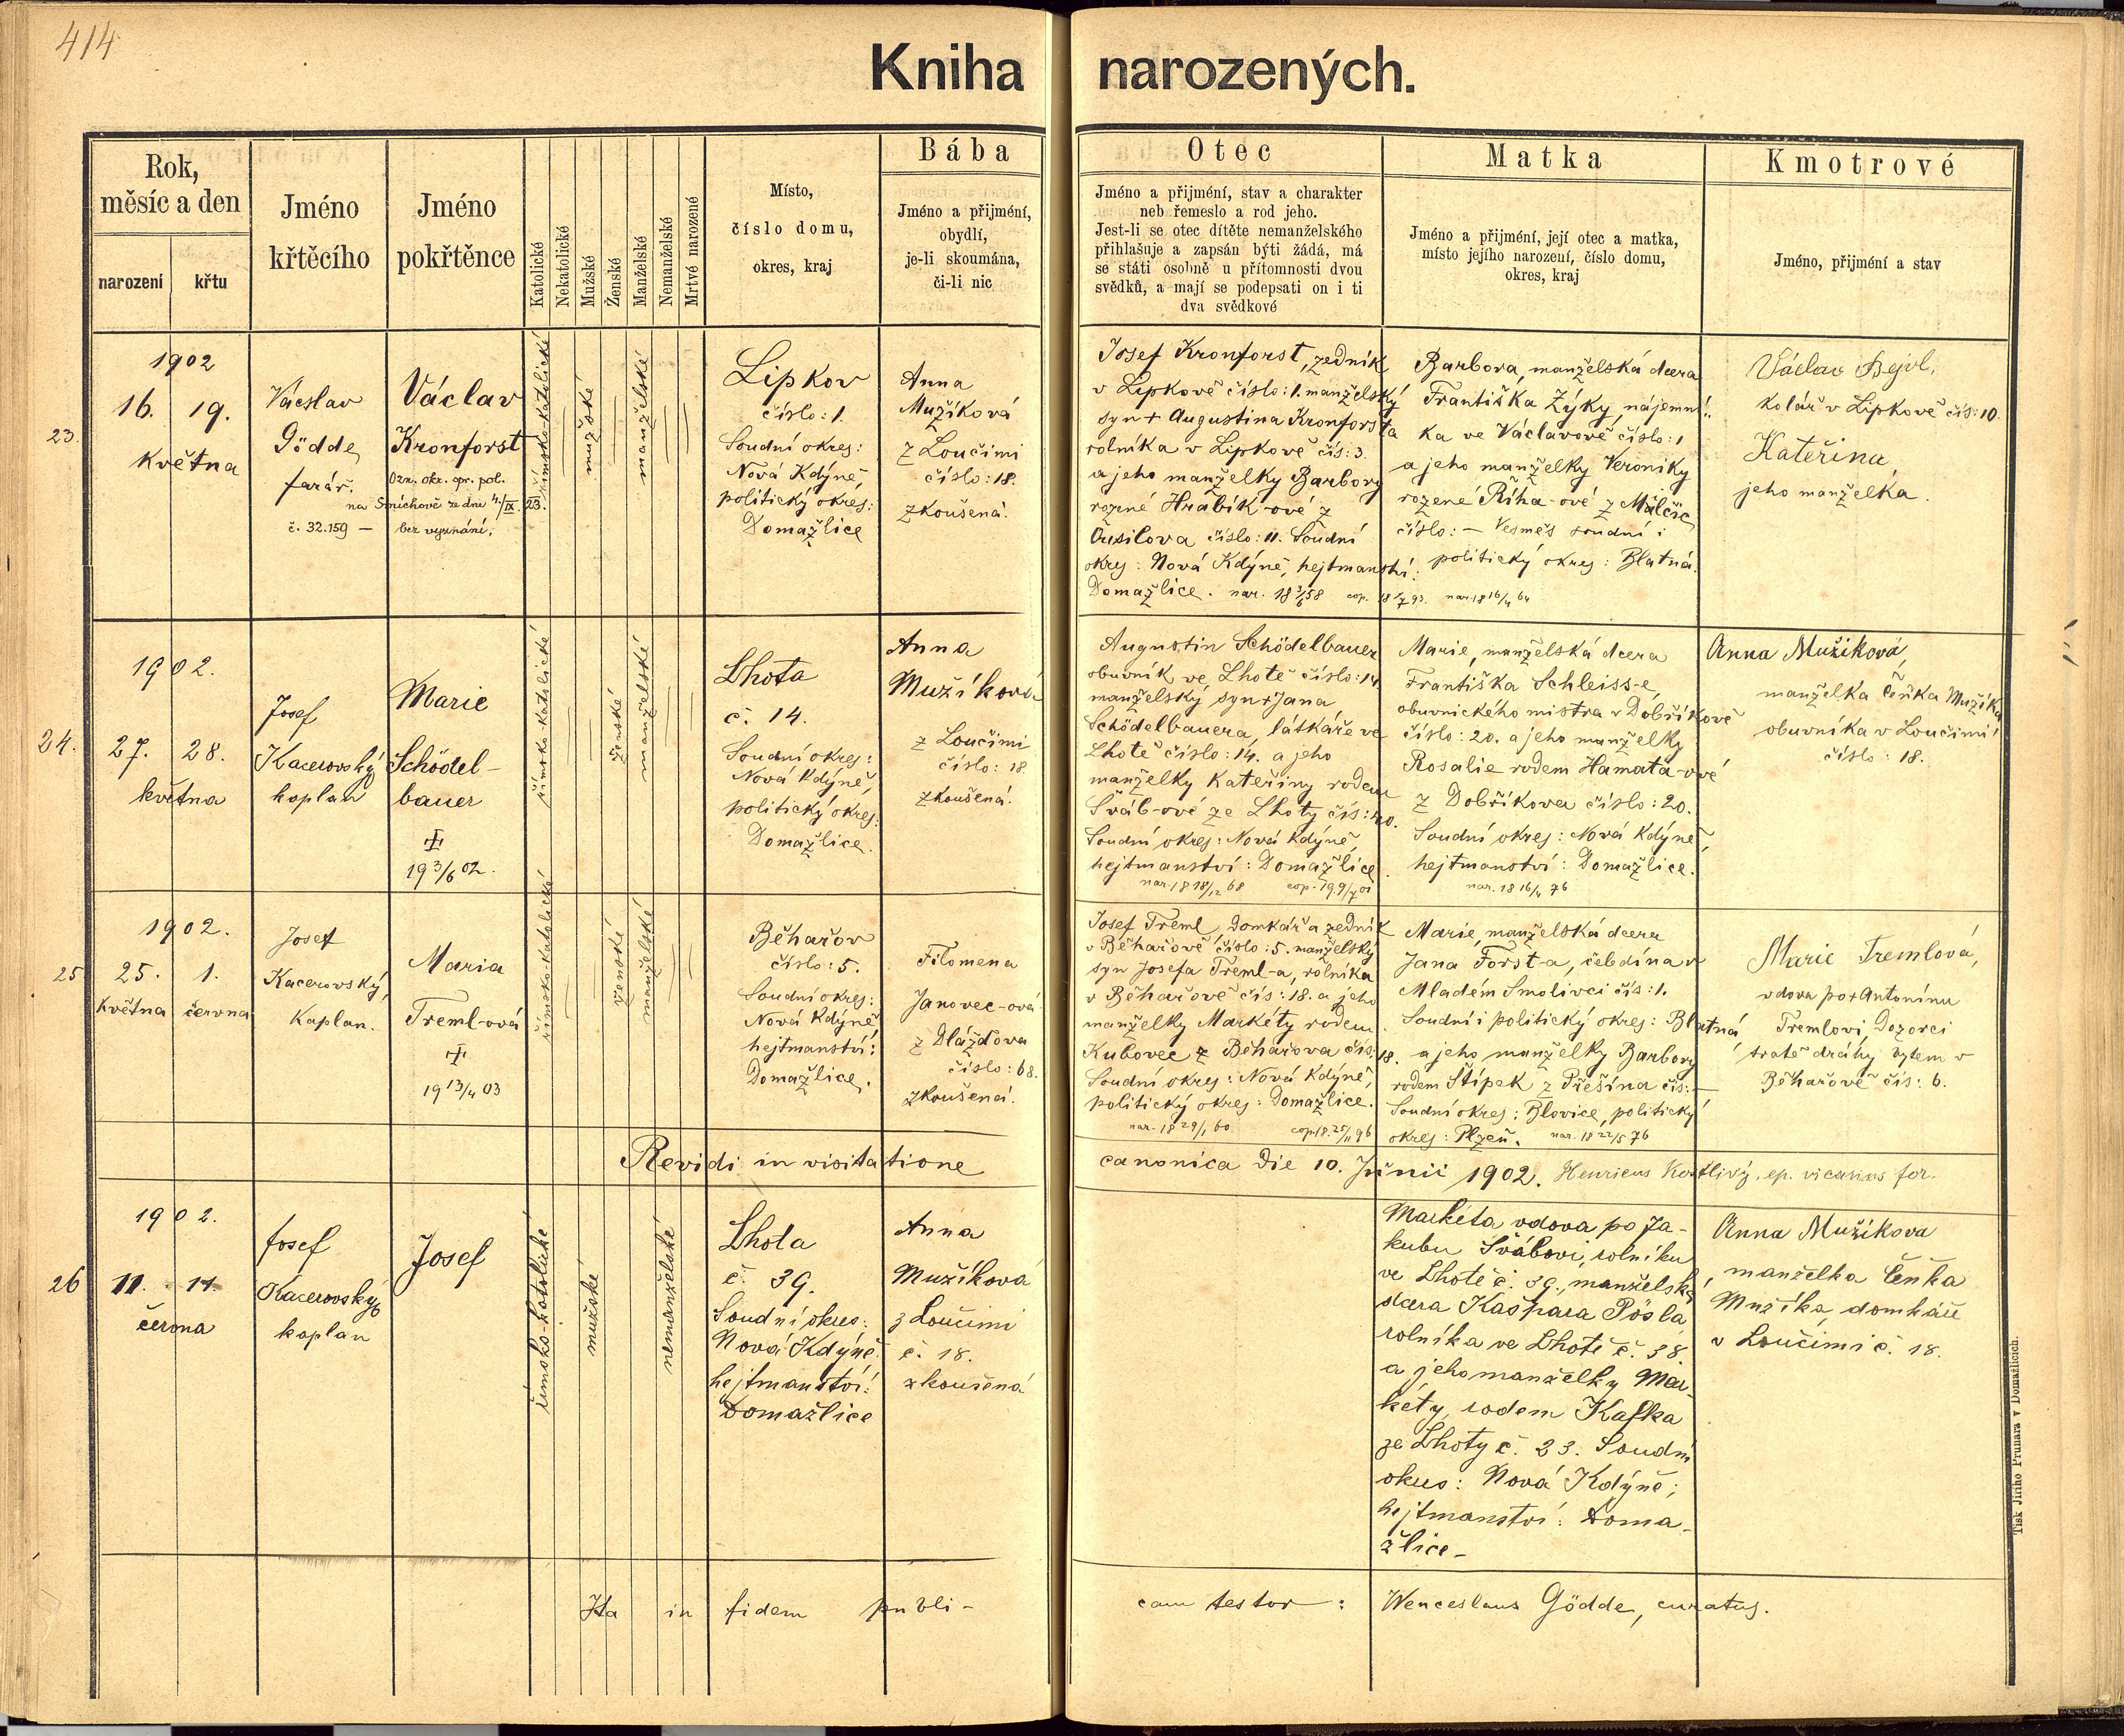 414
Kniha narozených.
Rok,
měsíc a den
narození
křtu
Jméno
křtěcího
Jméno
pokřtěnce
Katolické
Nekatolické
Mužské
Ženské
Manželské
Nemanželské
Mrtvé narozené
Místo,
číslo domu,
okres, kraj
Bába
Jméno a přijmění,
obydlí,
je-li skoumána,
či-li nic
Otec
Jméno a přijmění, stav a charakter
neb řemeslo a rod jeho.
Jest-li se otec dítěte nemanželského
přihlašuje a zapsán býti žádá, má
se státi osobně u přítomnosti dvou
svědků, a mají se podepsati on i ti
dva svědkové
Matka
Jméno a přijmění, její otec a matka,
místo jejího narození, číslo domu,
okres, kraj
Kmotrové
Jméno, přijmění a stav
23.
1902
16. 19.
května
Vácslav
Gödde,
farář.
Václav
Kronforst
Ozn. okr. spr. pol.
na Smíchově ze dne 4./IX. 23.
č. 32.159 — bez vyznání.
římsko-katolické
mužské
manželské
Lipkov
číslo: 1.
Soudní okres:
Nová Kdýně,
politický okres:
Domažlice
Anna
Mužíková
z Loučimi
číslo: 18.
zkoušená.
Josef Kronforst, zedník
v Lipkově číslo: 1. manželský
syn + Augustina Kronforsta
rolníka v Lipkově čís: 3.
a jeho manželky Barbory
rozené Hrabík-ové z
Ousilova číslo: 11. Soudní
okres: Nová Kdýně, hejtmanství:
Domažlice. nar. 18 3/6 58 cop. 18 1/7 93. nar. 18 16/4 64
Barbora, manželská dcera
Františka Zýky, nájemní-
ka ve Václavově číslo: 1
a jeho manželky Veroniky
rozené Říha-ové z Málčic
číslo: — Vesměs soudní i
politický okres: Blatná.
Václav Bejvl,
kolář v Lipkově čís: 10.
Kateřina,
jeho manželka.
24.
1902.
27. 28.
května
Josef
Kacerovský
kaplan
Marie
Schödel-
bauer
19 3/6 02.
římsko-katolické
ženské
manželské
Lhota
č. 14.
Soudní okres:
Nová Kdýně,
politický okres:
Domažlice.
Anna
Mužíková
z Loučimi
číslo: 18.
zkoušená.
Augustin Schödelbauer
obuvník ve Lhotě číslo: 14.
manželský syn + Jana
Schödelbauera, látkáře ve
Lhotě číslo: 14. a jeho
manželky Kateřiny rodem
Šváb-ové ze Lhoty čís: 40.
Soudní okres: Nová Kdýně,
hejtmanství: Domažlice.
nar. 18 18/12 68 cop. 19 9/7 01
Marie, manželská dcera
Františka Schleiss-e,
obuvnického mistra v Dobříkově
číslo: 20. a jeho manželky
Rosalie rodem Hamata-ové
z Dobříkova číslo: 20.
Soudní okres: Nová Kdýně,
hejtmanství: Domažlice.
nar. 18 16/4 76
Anna Mužíková,
manželka Čeňka Mužíka
obuvníka v Loučimi
číslo: 18.
25
1902.
25. 1.
května června
Josef
Kacerovský,
Kaplan.
Maria
Treml-ová
19 13/4 03
římsko-katolické
ženské
manželské
Běhařov
číslo: 5.
Soudní okres:
Nová Kdýně
hejtmanství:
Domažlice.
Filomena
Janovec-ová
z Dlažďova
číslo: 68.
zkoušená.
Josef Treml, Domkář a zedník
v Běhařově číslo: 5. manželský
syn Josefa Treml-a, rolníka
v Běhařově čís: 18. a jeho
manželky Markéty rodem
Kubovec z Běhařova čís: 18.
Soudní okres: Nová Kdýně,
politický okres: Domažlice.
nar. 18 29/1 60 cop. 18 25/11 96
Marie, manželská dcera
Jana Foršt-a, čeledína v
Mladém Smolivci čís: 1.
Soudní i politický okres: Blatná
a jeho manželky Barbory
rodem Štípek z Přešína čís: —
Soudní okres: Blovice, politický
okres: Plzeň. nar. 18 22/5 76
Marie Tremlová,
vdova po + Antonínu
Tremlovi, Dozorci
tratě dráhy bytem v
Běhařově čís: 6.
Revidi in visitatione canonica Die 10. Junii 1902. Henricus Kostlivý, ep. vicarius for.
26
1902.
11. 11.
června
Josef
Kacerovský
kaplan
Josef
římsko-katolické
mužské
nemanželské
Lhota
č. 39.
Soudní okres:
Nová Kdýně
hejtmanství:
Domažlice
Anna
Mužíková
z Loučimi
č. 18.
zkoušená
Markéta vdova po Ja-
kubu Švábovi, rolníku
ve Lhotě č. 39., manželská
dcera Kašpara Pösla
rolníka ve Lhotě č. 38.
a jeho manželky Mar-
kéty, rodem Kafka
ze Lhoty č. 23. Soudní
okres: Nová Kdýně;
hejtmanství: Doma-
žlice –
Anna Mužíkova
manželka Čeňka
Mužíka, domkáře
v Loučimi č. 18.
Ita in fidem publi- cam testor: Wenceslaus Gödde, curatus.
Tisk Jiřího Prunara v Domažlicích.